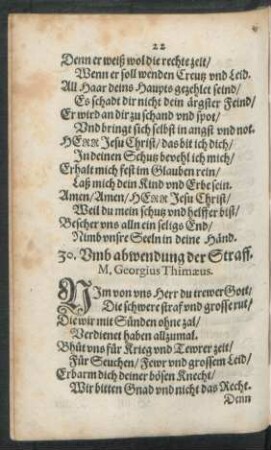 22
Denn er weiß wol die rechte zeit/
Wenn er soll wenden Creutz vnd Leid.
All Haar deins Haupts gezehlet seind/
Es schadt dir nicht dein ärgster Feind/
Er wird an dir zu schand vnd spot/
Vnd bringt sich selbst in angst vnd not.
HErr Jesu Christ/ das bit ich dich/
In deinen Schutz bevehl ich mich/
Erhalt mich fest im Glauben rein/
Laß mich dein Kind vnd Erbe sein.
Amen/ Amen/ HErr Jesu Christ/
Weil du mein schutz vnd helffer bist/
Bescher vns alln ein seligs End/
Nimb vnsre Seeln in deine Händ.
30. Vmb abwendung der Straff.
M, Georgius Thimæus.
NIm von vns Herr du trewer Gott/
Die schwere straf vnd grosse rut/
Die wir mit Sünden ohne zal/
Verdienet haben allzumal.
Bhüt vns für Krieg vnd Tewrer zeit/
Für Seuchen/ Fewr vnd grossem Leid/
Erbarm dich deiner bösen Knecht/
Wir bitten Gnad vnd nicht das Recht.
Denn